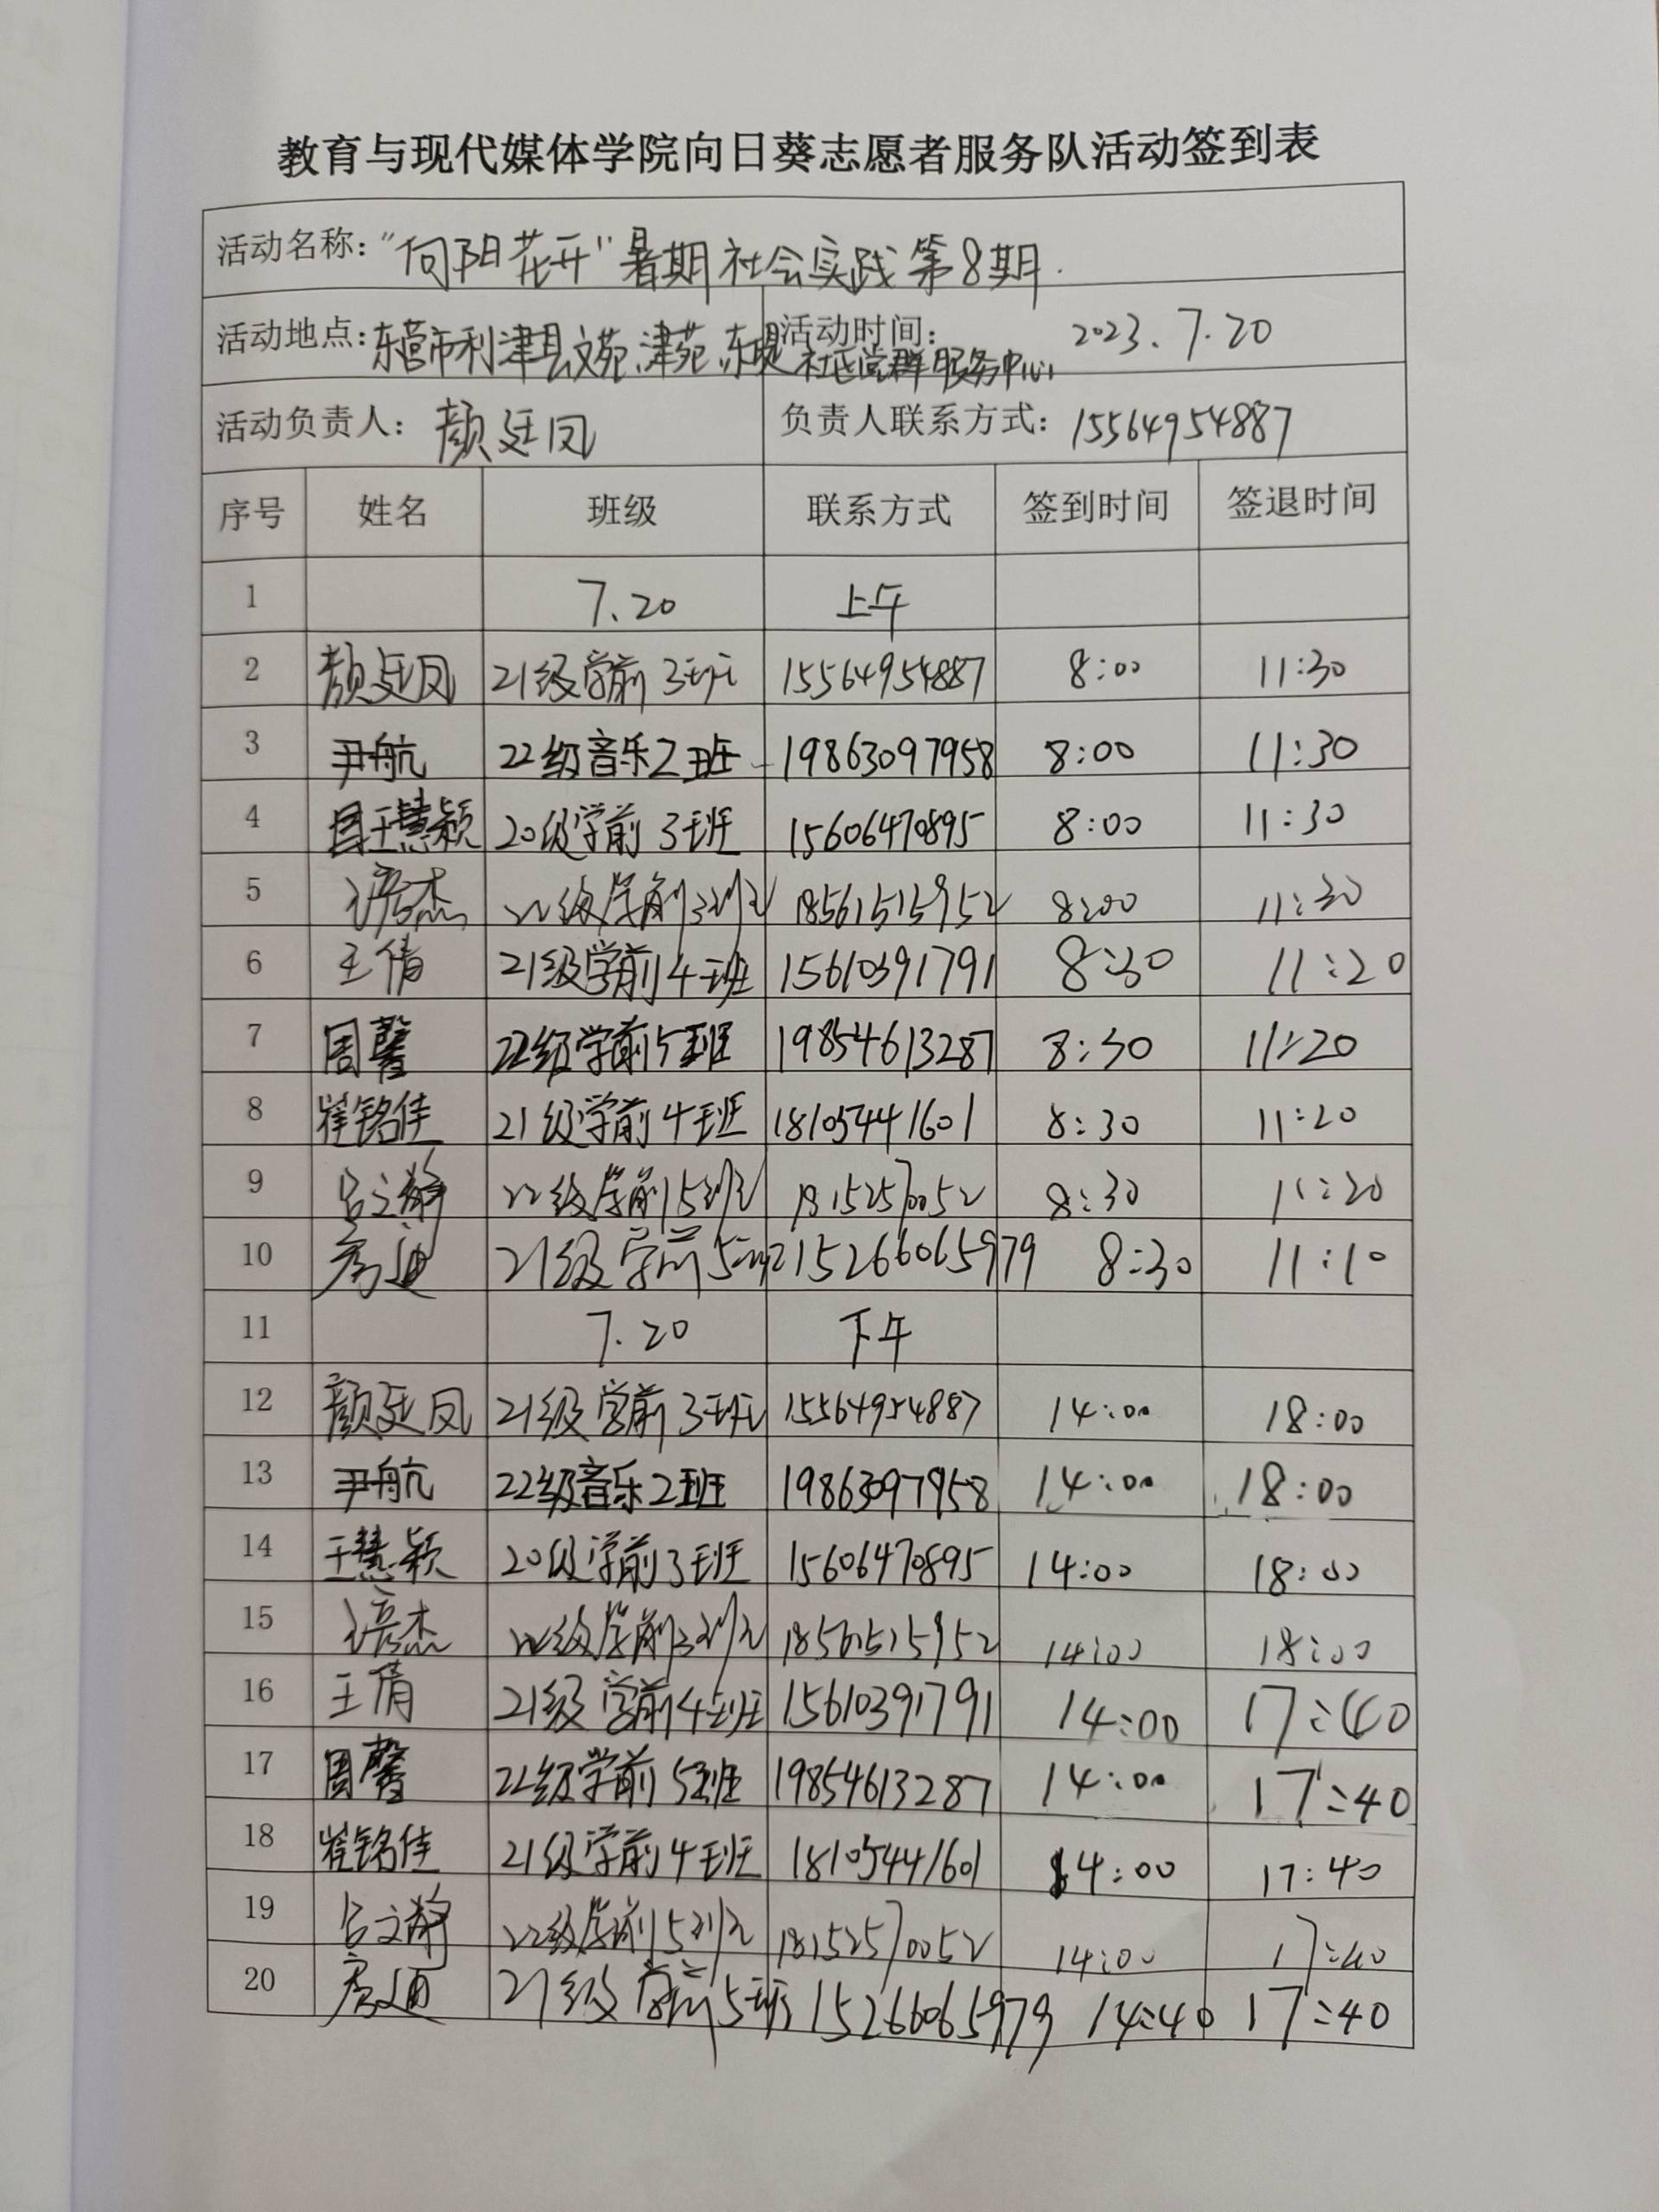 教育与现代媒体学院向日葵志愿者服务队活动签到表
活动名称："向阳花开"暑期社会实践第8期.
活动地点：东营市利津县文苑、津苑、东堤社区党群服务中心 活动时间： 2023.7.20
活动负责人：颜廷凤 负责人联系方式：15564954887
序号 姓名 班级 联系方式 签到时间 签退时间
1 7.20 上午
2 颜廷凤 21级学前3班 15564954887 8:00 11:30
3 尹航 22级音乐2班 19863097958 8:00 11:30
4 王慧颖 20级学前3班 15606470895 8:00 11:30
5 22级学前3班 18561515952 8:00 11:30
6 王倩 21级学前4班 15610391791 8:30 11:20
7 周馨 22级学前5班 19854613287 8:30 11:20
8 崔铭佳 21级学前4班 18105441601 8:30 11:20
9 吕文静 22级学前5班 18152570052 8:30 11:20
10 21级学前5班 15266065979 8:30 11:10
11 7.20 下午
12 颜廷凤 21级学前3班 15564954887 14:00 18:00
13 尹航 22级音乐2班 19863097958 14:00 18:00
14 王慧颖 20级学前3班 15606470895 14:00 18:00
15 22级学前3班 18561515952 14:00 18:00
16 王倩 21级学前4班 15610391791 14:00 17:40
17 周馨 22级学前5班 19854613287 14:00 17:40
18 崔铭佳 21级学前4班 18105441601 14:00 17:40
19 吕文静 22级学前5班 18152570052 14:00 17:40
20 21级学前5班 15266065979 14:40 17:40